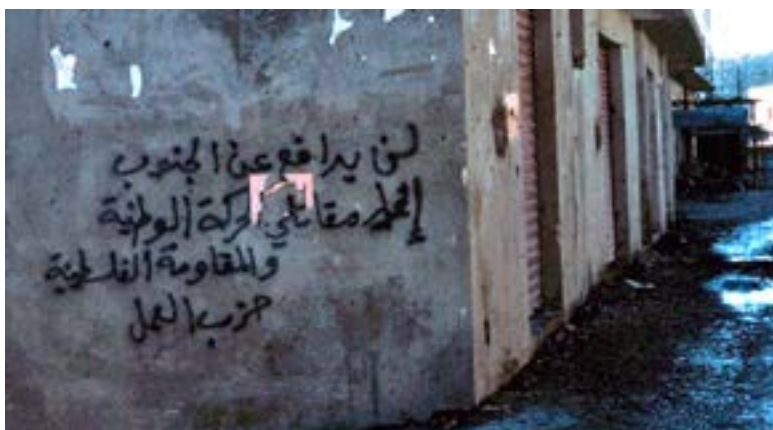 لن يدافع عن الجنوب
مقاتلي الحركة الوطنية
والمقاومة الفلسطينية
حزب العمل